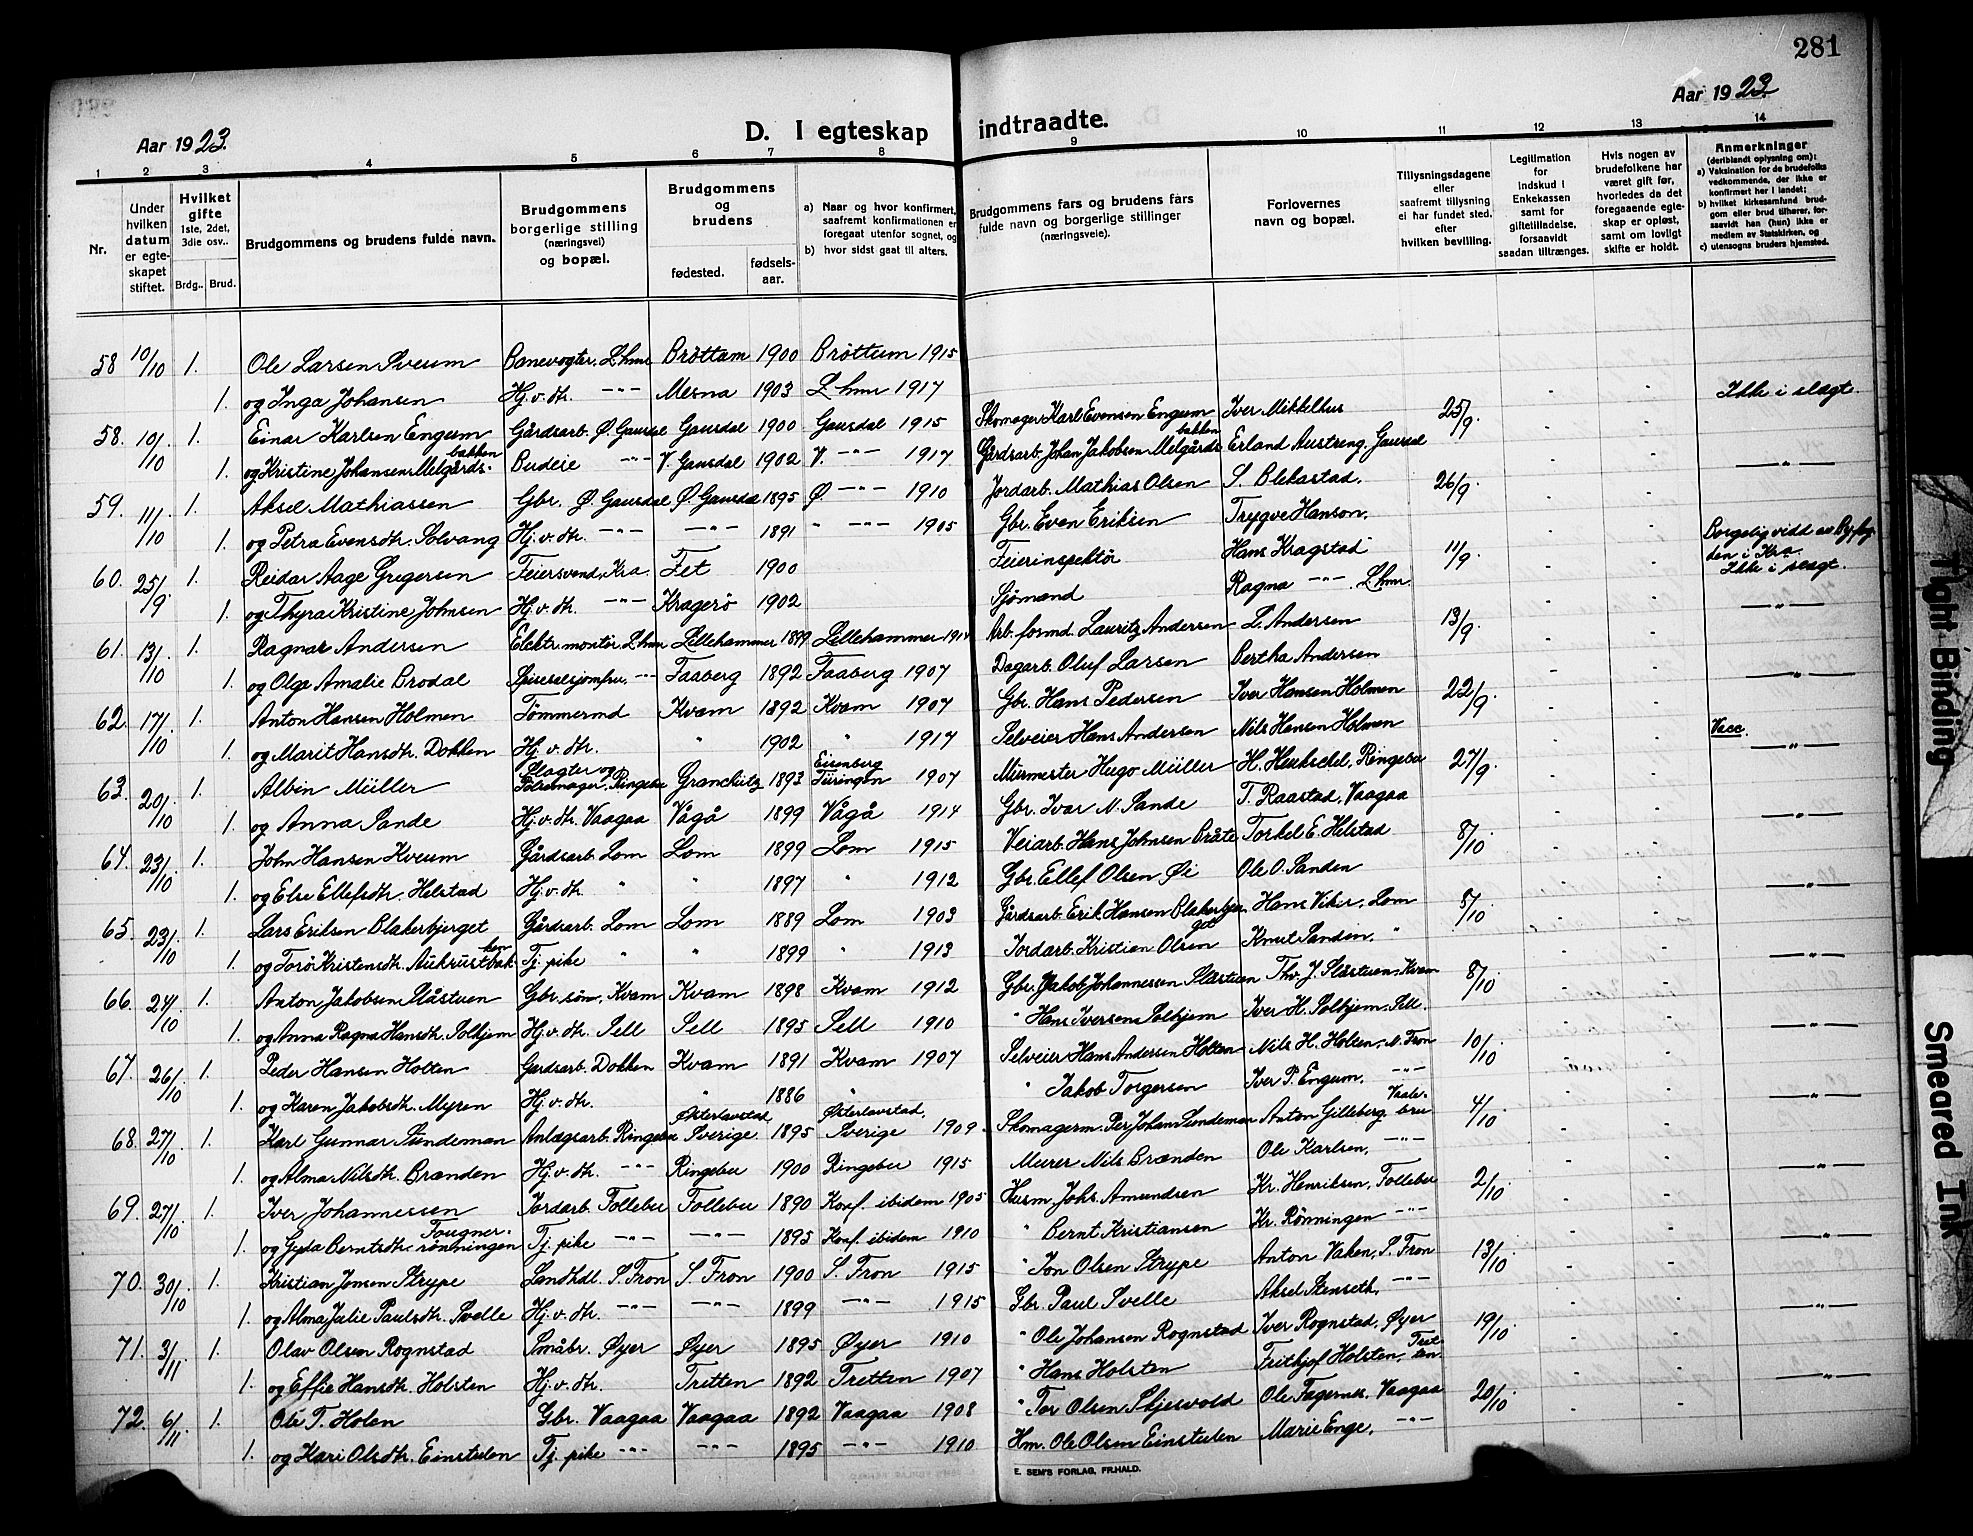 281
Aar 1923.
Aar 1923.
D. I egteskap indtraadte.
1 2 3 4 5 6 7 8 9 10 11 12 13 14
Nr.
Under hvilken datum er egteskapet stiftet.
Hvilket gifte 1ste, 2det, 3die osv..
Brdg.. Brud.
Brudgommens og brudens fulde navn.
Brudgommens borgerlige stilling (næringsvei) og bopæl.
Brudgommens og brudens
fødested.
fødsels-aar.
a) Naar og hvor konfirmert, saafremt konfirmationen er foregaat utenfor sognet, og
b) hvor sidst gaat til alters.
Brudgommens fars og brudens fars fulde navn og borgerlige stillinger (næringsveie).
Forlovernes navn og bopæl.
Tillysningsdagene eller saafremt tillysning ei har fundet sted. efter hvilken bevilling.
Legitimation for indskud i Enkekassen samt for giftetilladelse, forsaavidt saadan tiltrænges.
Hvis nogen av brudefolkene har været gift før, hvorledes da det foregaaende egteskap er opløst, samt om lovligt skifte er holdt.
Anmerkninger (deriblandt oplysning om):
a) Vaksination for de brudefolks vedkommende, der ikke er konfirmert her i landet;
b) hvilket kirkesamfund brudgom eller brud tilhører, forsaavidt han (hun) ikke er medlem av Statskirken, og
c) utensogns bruders hjemsted.
58 10/10 1. Ole Larsen Sveum Banevogter. L.hmr Brøttum 1900 Brøttum 1915
1. og Inga Johansen Hj. v. dtr. —"— Mesna 1903 L.hmr 1917 Ikke i slægt.
58. 10/10 1. Einar Karlsen Engum Gårdsarb. Ø. Gausdal Gausdal 1900 Gausdal 1915 Skomager Karl Evensen Engum Iver Mikkelhus 25/9
1. og Kristine Johansen Melgårdsbakken Budeie —"— V. Gausdal 1902 V. —"— 1917 Gårdsarb. Johan Jakobsen Melgårdsbakken Erland Austreng, Gausdal —"—
59. 11/10 1. Aksel Mathiassen Gbr. Ø. Gausdal Ø. Gausdal 1895 Ø —"— 1910 Jordarb. Mathias Olsen S. Blekastad. 26/9
1. og Petra Evensdtr. Solvang Hj. v. dtr. —"— —"— 1891 " —"— 1905 Gbr. Even Eriksen Trygve Hanson.
60. 25/9 1. Reidar Aage Gregersen Feiersvend, Kra. Fet 1900 Feierinspektør Hans Kragstad 11/9 Borgelig viedd av Byfogden i Kra. Ikke i slægt.
1. og Thyra Kristine Johnsen Hj. v. dtr. —"— Kragerø 1902 Sjømand Ragna —"— L.hmr. —"—
61. 13/10 1. Ragnar Andersen Elektr. montør. L.hmr Lillehammer 1899 Lillehammer 1914 Arb. formd. Lauritz Andersen L. Andersen 13/9
1. og Olga Amalie Brodal Spisesalsjomfru. —"— Faaberg 1892 Faaberg 1907 Dagarb. Oluf Larsen Bertha Andersen —"—
62. 17/10 1. Anton Hansen Holmen Tømmermd Kvam 1892 Kvam 1907 Gbr. Hans Pedersen Iver Hansen Holmen 22/9
1. og Marit Hansdtr. Dokken Hj. v. dtr. " 1902 " 1917 Selveier Hans Andersen Nils Hansen Holmen —"—
63. 20/10 1. Albin Müller Slagter og Pølsemager, Ringebu Granchütz 1893 Eisenberg Türingen 1907 Murmester Hugo Müller H. Henkschel, Ringebu 27/9 Vacc.
1. og Anna Sande Hj. v. dtr. Vaagaa Vågå 1899 Vågå 1914 Gbr. Ivar N. Sande T. Raastad, Vaagaa —"—
64. 23/10 1. John Hansen Kveum Gårdsarb. Lom Lom 1899 Lom 1915 Veiarb. Hans Johnsen Bråte Torkel E. Helstad 8/10
1. og Else Ellefsdtr. Helstad Hj. v. dtr. " " 1897 " 1912 Gbr. Ellef Olsen Øi Ole O. Sanden —"—
65. 23/10 1. Lars Eriksen Blakerbjerget Gårdsarb. Lom Lom 1889 Lom 1903 Gårdsarb. Erik Hansen Blakerbjerget Hans Vikir, Lom 8/10
1. og Torø Kristensdtr. Aukrustbakken Tj. pike " " 1899 " 1913 Jordarb. Kristian Olsen Knut Sanden, " —"—
66. 24/10 1. Anton Jakobsen Slåstuen Gbr. søn, Kvam Kvam 1898 Kvam 1912 Gbr. Jakob Johannessen Slåstuen Thv. J. Slåstuen, Kvam 8/10
1. og Anna Ragna Hansdtr. Solhjem Hj. v. dtr. Sell Sell 1895 Sell 1910 " Hans Iversen Solhjem Iver H. Solhjem, Sell. —"—
67. 26/10 1. Peder Hansen Holten Gardsarb. Dokken Kvam 1891 Kvam 1907 Selveier Hans Andersen Holten Nils H. Holten, N. Fron 10/10
1. og Karen Jakobsdtr. Myren Hj. v. dtr. " 1886 " " Jakob Torgersen Iver P. Engum. —"— —"—
68. 27/10 1. Karl Gunnar Sundeman Anlægsarb. Ringebu Østerlavstad Sverige 1895 Østerlavstad, Sverige 1909 Skomagerm. Per Johan Sundeman Anton Gilleberg, Vaalebru 4/10
1. og Alma Nilsdtr. Brænden Hj. v. dtr. —"— Ringebu 1900 Ringebu 1915 Murer Nils Brænden Ole Karlsen, —"— —"—
69. 27/10 1. Iver Johannessen Jordarb. Follebu Follebu 1890 Konf. ibidem 1905 Husm. Johs. Amundsen Kr. Henriksen, Follebu 2/10
1. og Gyda Berntsdtr. Fougner-rønningen Tj. pike —"— —"— 1895 Konf. ibidem 1910 " Bernt Kristiansen Kr. Rønningen —"— —"—
70. 30/10 1. Kristian Jonsen Strype Landhdl. S. Fron S. Fron 1900 S. Fron 1915 " Jon Olsen Strype Anton Vaken, S. Fron 13/10
1. og Alma Julie Paulsdtr. Svelle Hj. v. dtr. —"— —"— 1899 —"— 1915 Gbr. Paul Svelle Aksel Stenseth, —"— —"—
71. 3/11 1. Olav Olsen Rognstad Småbr. Øyer Øyer 1895 Øyer 1910 " Ole Johansen Rognstad Iver Rognstad, Øyer 19/10
1. og Effie Hansdtr. Holsten Hj. v. dtr. Tretten 1892 Tretten 1907 " Hans Holsten Feithjof Holsten, Tretten. —"—
72. 6/11 1. Ole T. Holen Gbr. Vaagaa Vaagaa 1892 Vaagaa 1908 " Tor Olsen Skjesvold Ole Fagernes. Vaagaa 20/10
1. og Kari Olsdtr. Einstulen Tj. pike —"— —"— 1895 —"— 1910 Hm. Ole Olsen Einstulen Marie Enge, —"— —"—
E. SEM'S FORLAG, FR.HALD.
Tight Binding
Smeared Ink